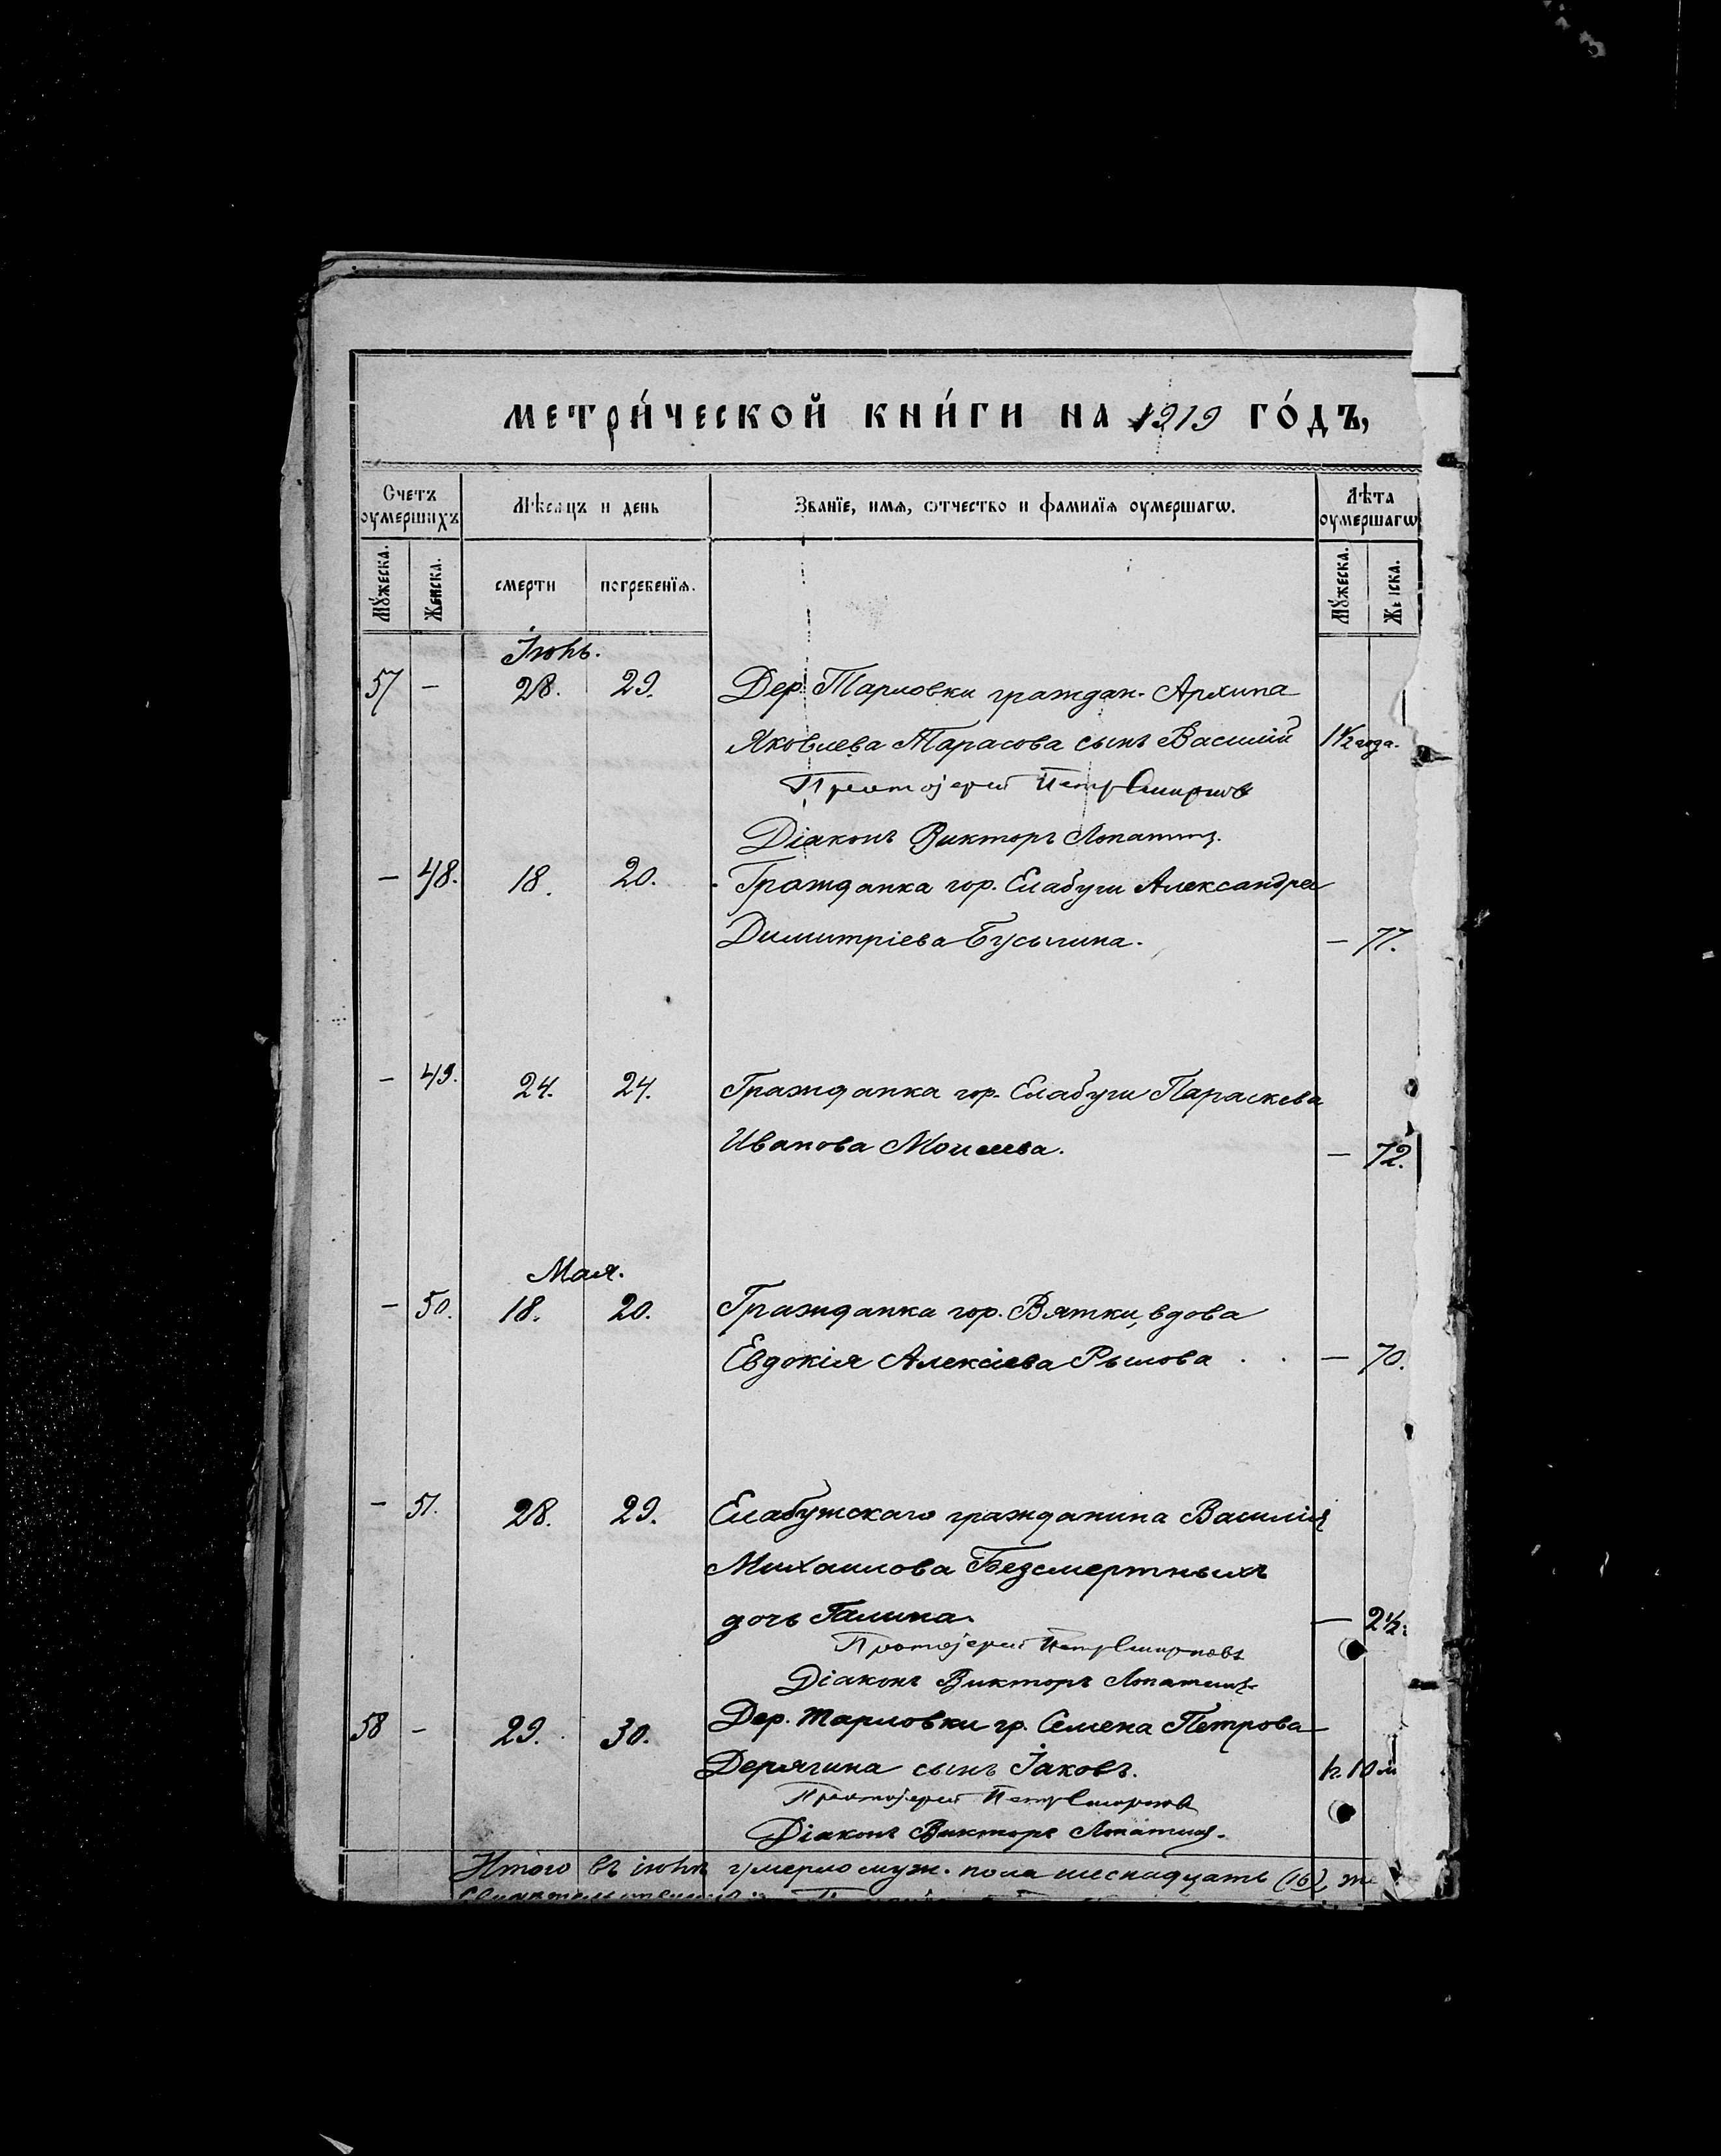 МЕТРИ́ЧЕСКОЙ КНИ́ГИ НА 1919 ГО́ДЪ,
Счетъ оумершихъ
Мѣсяцъ и день
Званїе, имѧ, ѿтчество и фамилїѧ оумершагѡ.
Лѣта оумершагѡ
Мꙋжеска.
Женска.
смерти
погребенїѧ.
Мꙋжеска.
Женска.
Іюнь.
57 — 28. 29. Дер. Тарловки граждан. Архипа
Яковлева Тарасова сынъ Василій 1 1/2 года.
Протоіерей Петръ Смирновъ
Діаконъ Викторъ Лопатинъ.
— 48. 18. 20. Гражданка гор. Елабуги Александра
Димитріева Бусыгина. — 77.
— 49. 24. 24. Гражданка гор. Елабуги Параскева
Иванова Моисеева. — 72.
Мая.
— 50. 18. 20. Гражданка гор. Вятки, вдова
Евдокія Алексіева Рылова . . — 70.
— 51. 28. 29. Елабужскаго гражданина Василія
Михаилова Безсмертныхъ
дочь Галина. — 2 1/2.
Протоіерей Петръ Смирновъ
Діаконъ Викторъ Лопатинъ.
58 — 29. 30. Дер. Тарловки гр. Семена Петрова
Дерягина сынъ Іаковъ. 1г. 10 м
Протоіерей Петръ Смирновъ
Діаконъ Викторъ Лопатинъ.
Итого въ іюнѣ умерло муж. пола шеснадцать (16), же